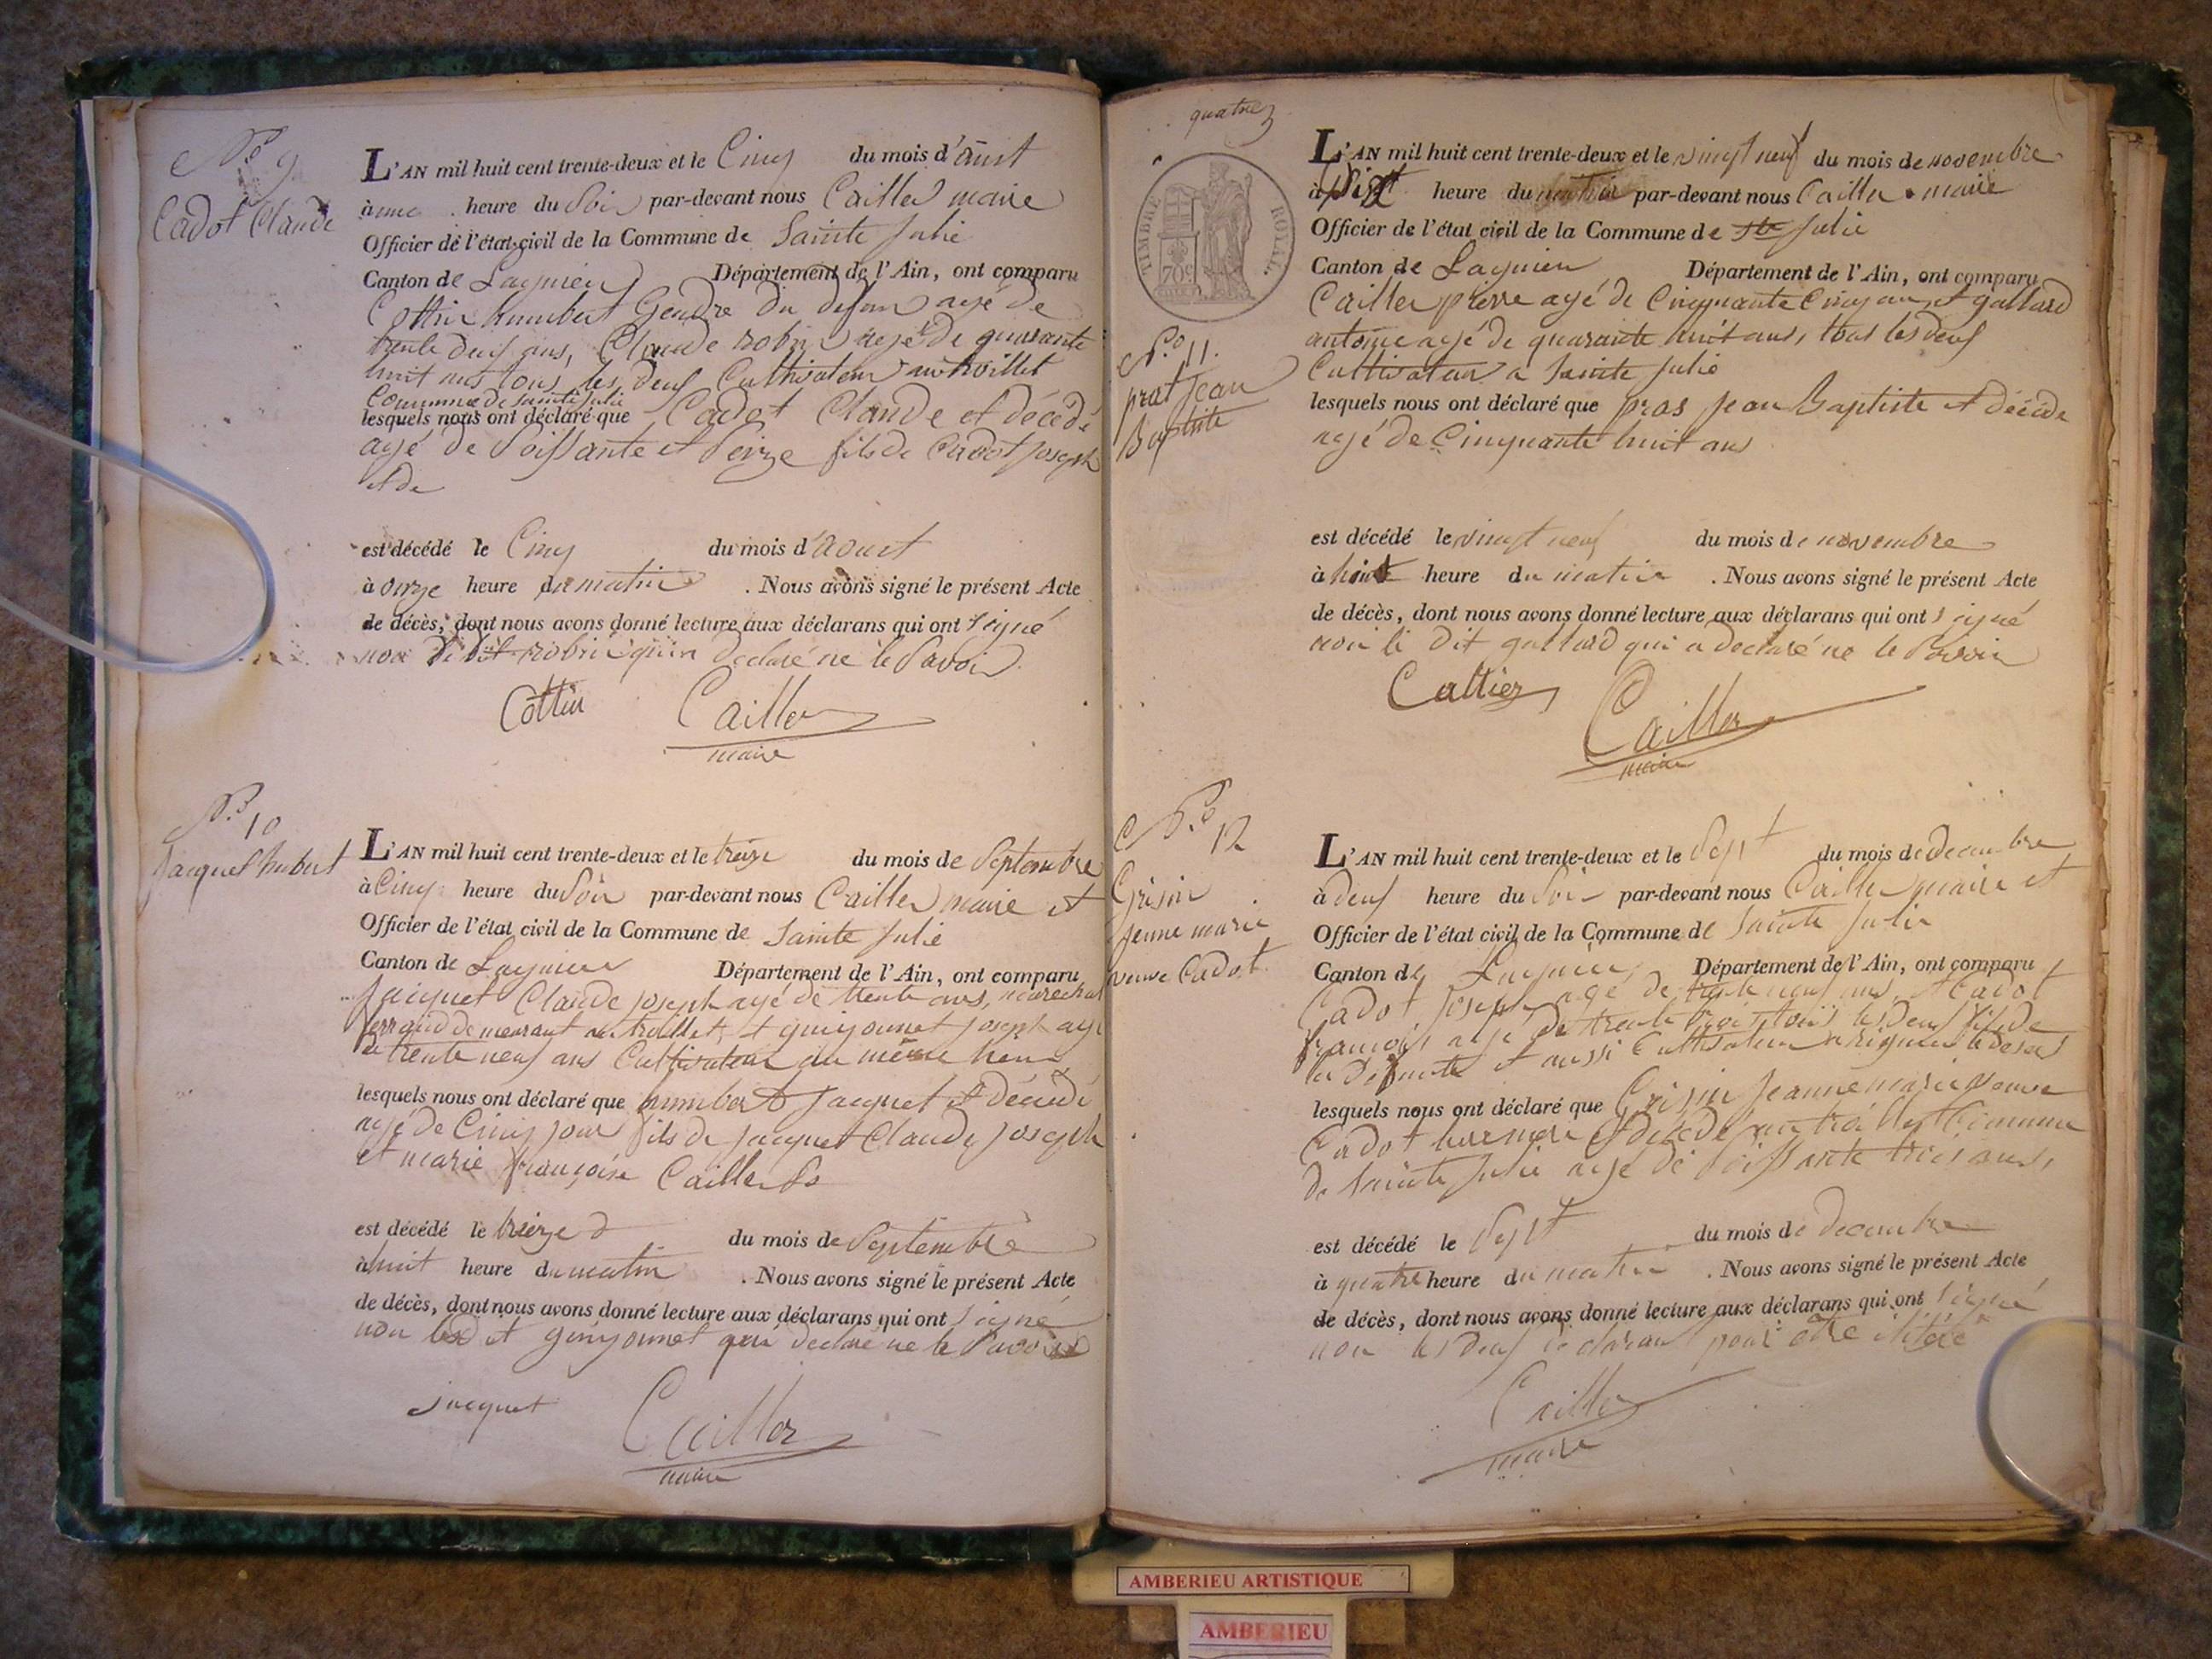 N.o 9
Cadot Claude
L'AN mil huit cent trente-deux et le Cinq du mois d'aust
à une heure du Soir par-devant nous Cailler maire
Officier de l'état civil de la Commune de Sainte Julie
Canton de Lagnieu Département de l'Ain, ont comparu
Cottin humbert Gendre du defun agé de
trente deux ans, Claude robin agé de quarante
huit ans tous les deux Cultivateur au troillet
Commune de Sainte Julie
lesquels nous ont déclaré que Cadot Claude et décédé
agé de Soissante et Seize fils de Cadot joseph
et de
est décédé le Cinq du mois d'aoust
à onze heure du matin . Nous avons signé le présent Acte
de décès, dont nous avons donné lecture aux déclarans qui ont signé
non robin declaré ne le Savoir
Cottin Cailler
maire
N.o 10
jacquet hubert
L'AN mil huit cent trente-deux et le treize du mois de Septembre
à Cinq heure du Soir par-devant nous Cailler maire et
Officier de l'état civil de la Commune de Sainte Julie
Canton de Lagnieu Département de l'Ain, ont comparu
jacquet Claude joseph agé de trente ans, marechal
ferrand demeurant au trollliet, et guigonnet joseph agé
de trente neuf ans Cultivateur du même lieu
lesquels nous ont déclaré que humbert jacquet et décédé
agé de Cinq jour fils de jacquet Claude joseph
et marie françoise Cailler
est décédé le treize du mois de Septembre
à huit heure du matin . Nous avons signé le présent Acte
de décès, dont nous avons donné lecture aux déclarans qui ont signé
non guigonnet declaré ne le Savoir
jacquet Cailler
maire
quatre
TIMBRE ROYAL.
709
N.o 11.
prat jean
Baptiste
L'AN mil huit cent trente-deux et le vingt neuf du mois de novembre
à heure du matin par-devant nous Cailler maire
Officier de l'état civil de la Commune de Ste Julie
Canton de Lagnieu Département de l'Ain, ont comparu
Cailler pierre agé de Cinquante Cinq ans et gallard
antoine agé de quarante huit ans, tous les deux
Cultivateur a Sainte Julie
lesquels nous ont déclaré que pras jean Baptiste et décédé
agé de Cinquante huit ans
est décédé le vingt neuf du mois de novembre
à heure du matin . Nous avons signé le présent Acte
de décès, dont nous avons donné lecture aux déclarans qui ont signé
non le Dit gallard qui a declaré ne le Savoir
Callier Cailler
maire
N.o 12
Grisin
jenne marie
veuve Cadot.
L'AN mil huit cent trente-deux et le Sept du mois de decembre
à deux heure du Soir par-devant nous Cailler maire et
Officier de l'état civil de la Commune de Sainte Julie
Canton de Lagnieu Département de l'Ain, ont comparu
Cadot joseph agé de trente neuf ans et Cadot
françois agé de trente trois tous les deux fils de
la Défunte et aussi Cultivateur
lesquels nous ont déclaré que Grisin jeanne marie veuve
Cadot leur mere et décédé au troillet Commune
de Sainte Julie agé de Soissante trois ans,
est décédé le Sept du mois de decembre
à quatre heure du matin . Nous avons signé le présent Acte
de décès, dont nous avons donné lecture aux déclarans qui ont signé
non les deux déclarant pour etre
Cailler
maire
AMBERIEU ARTISTIQUE
AMBERIEU